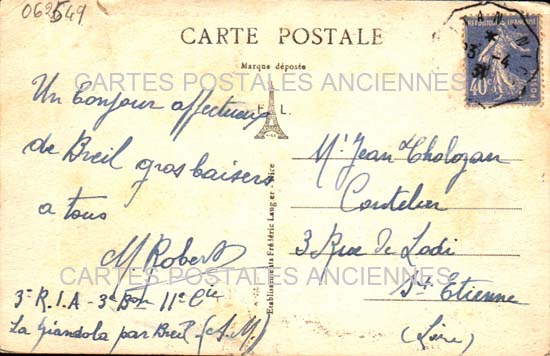 0625649
CARTE POSTALE
Marque déposée
CARTES POSTALES ANCIENNES
E. L.
Un bonjour affectueux
de Breil gros baisers
a tous
M Robert
3e R.I.A - 3e Bon 11e Cie
La Giandola par Breil - (A.M.)
Etablissements Frédéric Laugier - Nice
REPUBLIQUE FRANÇAISE
40c
POSTES
23 - 4
Mr Jean Thologan
Cordelier
3 Rue de Lodi
St. Etienne
(Loire)
CARTES POSTALES ANCIENNES